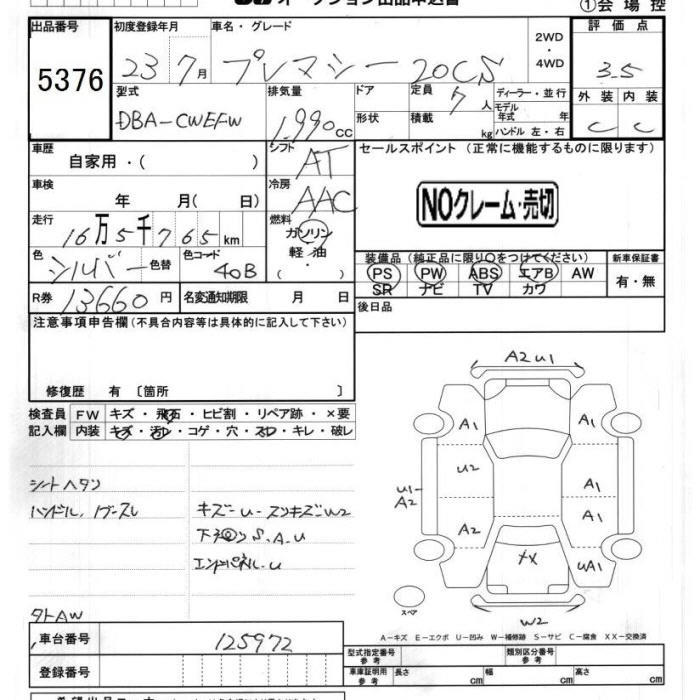 オークション出品申込書
①会場控
出品番号
5376
初度登録年月
23 7月
車名・グレード
プレマシー 20CS
2WD
・
4WD
評価点
3.5
外装 内装
C C
型式
DBA-CWEFW
排気量
1,990 CC
ドア
形状
定員
7人
積載
kg
ディーラー・並行
モデル
年式 年
ハンドル 左・右
車歴
自家用・( )
シフト
AT
セールスポイント(正常に機能するものに限ります)
NOクレーム・売切
車検
年 月( 日)
冷房
AAC
走行
16万5千765km
燃料
ガソリン
軽油
・
色
シルバー
色替
色コード
40B
装備品(純正品に限り○をつけてください)
PS PW ABS エアB AW
SR ナビ TV カワ
新車保証書
有・無
R券 13660円
名変通知期限 月 日
後日品
注意事項申告欄(不具合内容等は具体的に記入して下さい)
修復歴 有 〔箇所 〕
検査員
記入欄
FW キズ・飛石・ヒビ割・リペア跡・×要
内装 キズ・汚レ・コゲ・穴・スレ・キレ・破レ
シートヘタリ
ハンドル、
キズーU-スリキズーW2
S.A.U
エンドパネル-U
タトAW
A2 U1
A1
A1
U2
A1
U1-
A2
A1
A2
XX
UA1
スペア
W2
A-キズ E-エクボ U-凹み W-補修跡 S-サビ C-腐食 XX-交換済
車台番号
125972
登録番号
型式指定番号
参考
類別区分番号
参考
車庫証明用
参考
長さ cm
幅 cm
高さ cm